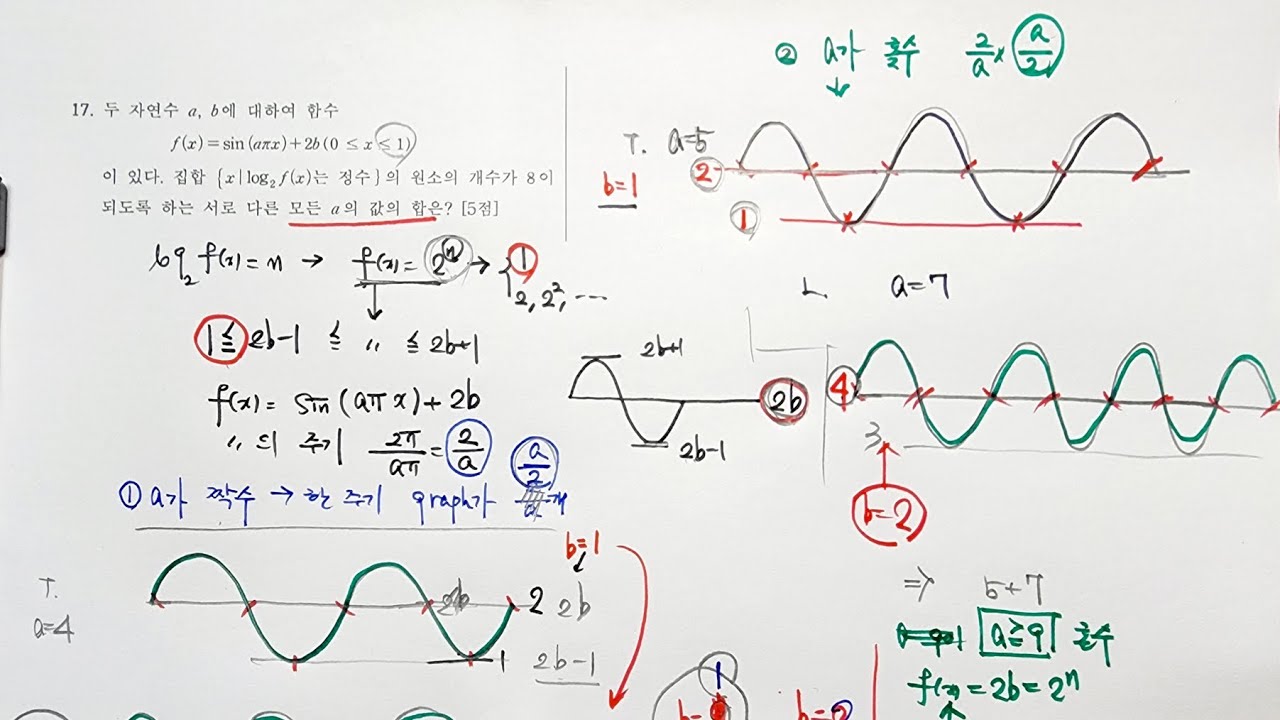 17. 두 자연수 a, b에 대하여 함수
f(x)=sin(aπx)+2b(0 ≤ x ≤ 1)
이 있다. 집합 {x|log₂f(x)는 정수}의 원소의 개수가 8이
되도록 하는 서로 다른 모든 a의 값의 합은? [5점]
log₂f(x)=n → f(x)=2ⁿ → { 1
2, 2², ...
1 ≦ 2b-1 ≦ 〃 ≦ 2b+1
f(x)= sin(aπx)+2b
〃 의 주기 2π/aπ = 2/a
① a가 짝수 → 한 주기 graph가 a/2 개
2b+1
2b
2b-1
T.
a=4
b=1
2b
2 2b
1 2b-1
② a가 홀수 2/a × a/2
T. a=5
b=1
2
1
a=7
4
3
b=2
⇒ 5+7
a≧9 홀수
f(x)=2b=2ⁿ
1
b=
b=2